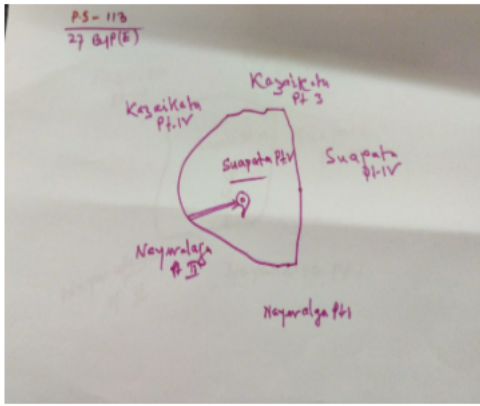 P.S - 113
27 BLP(E)
Kazaikata
Pt 3
Kazaikata
Pt.IV
Suapata Pt V
Suapata
Pt-IV
Nayeralga
Pt II
Nayeralga Pt I